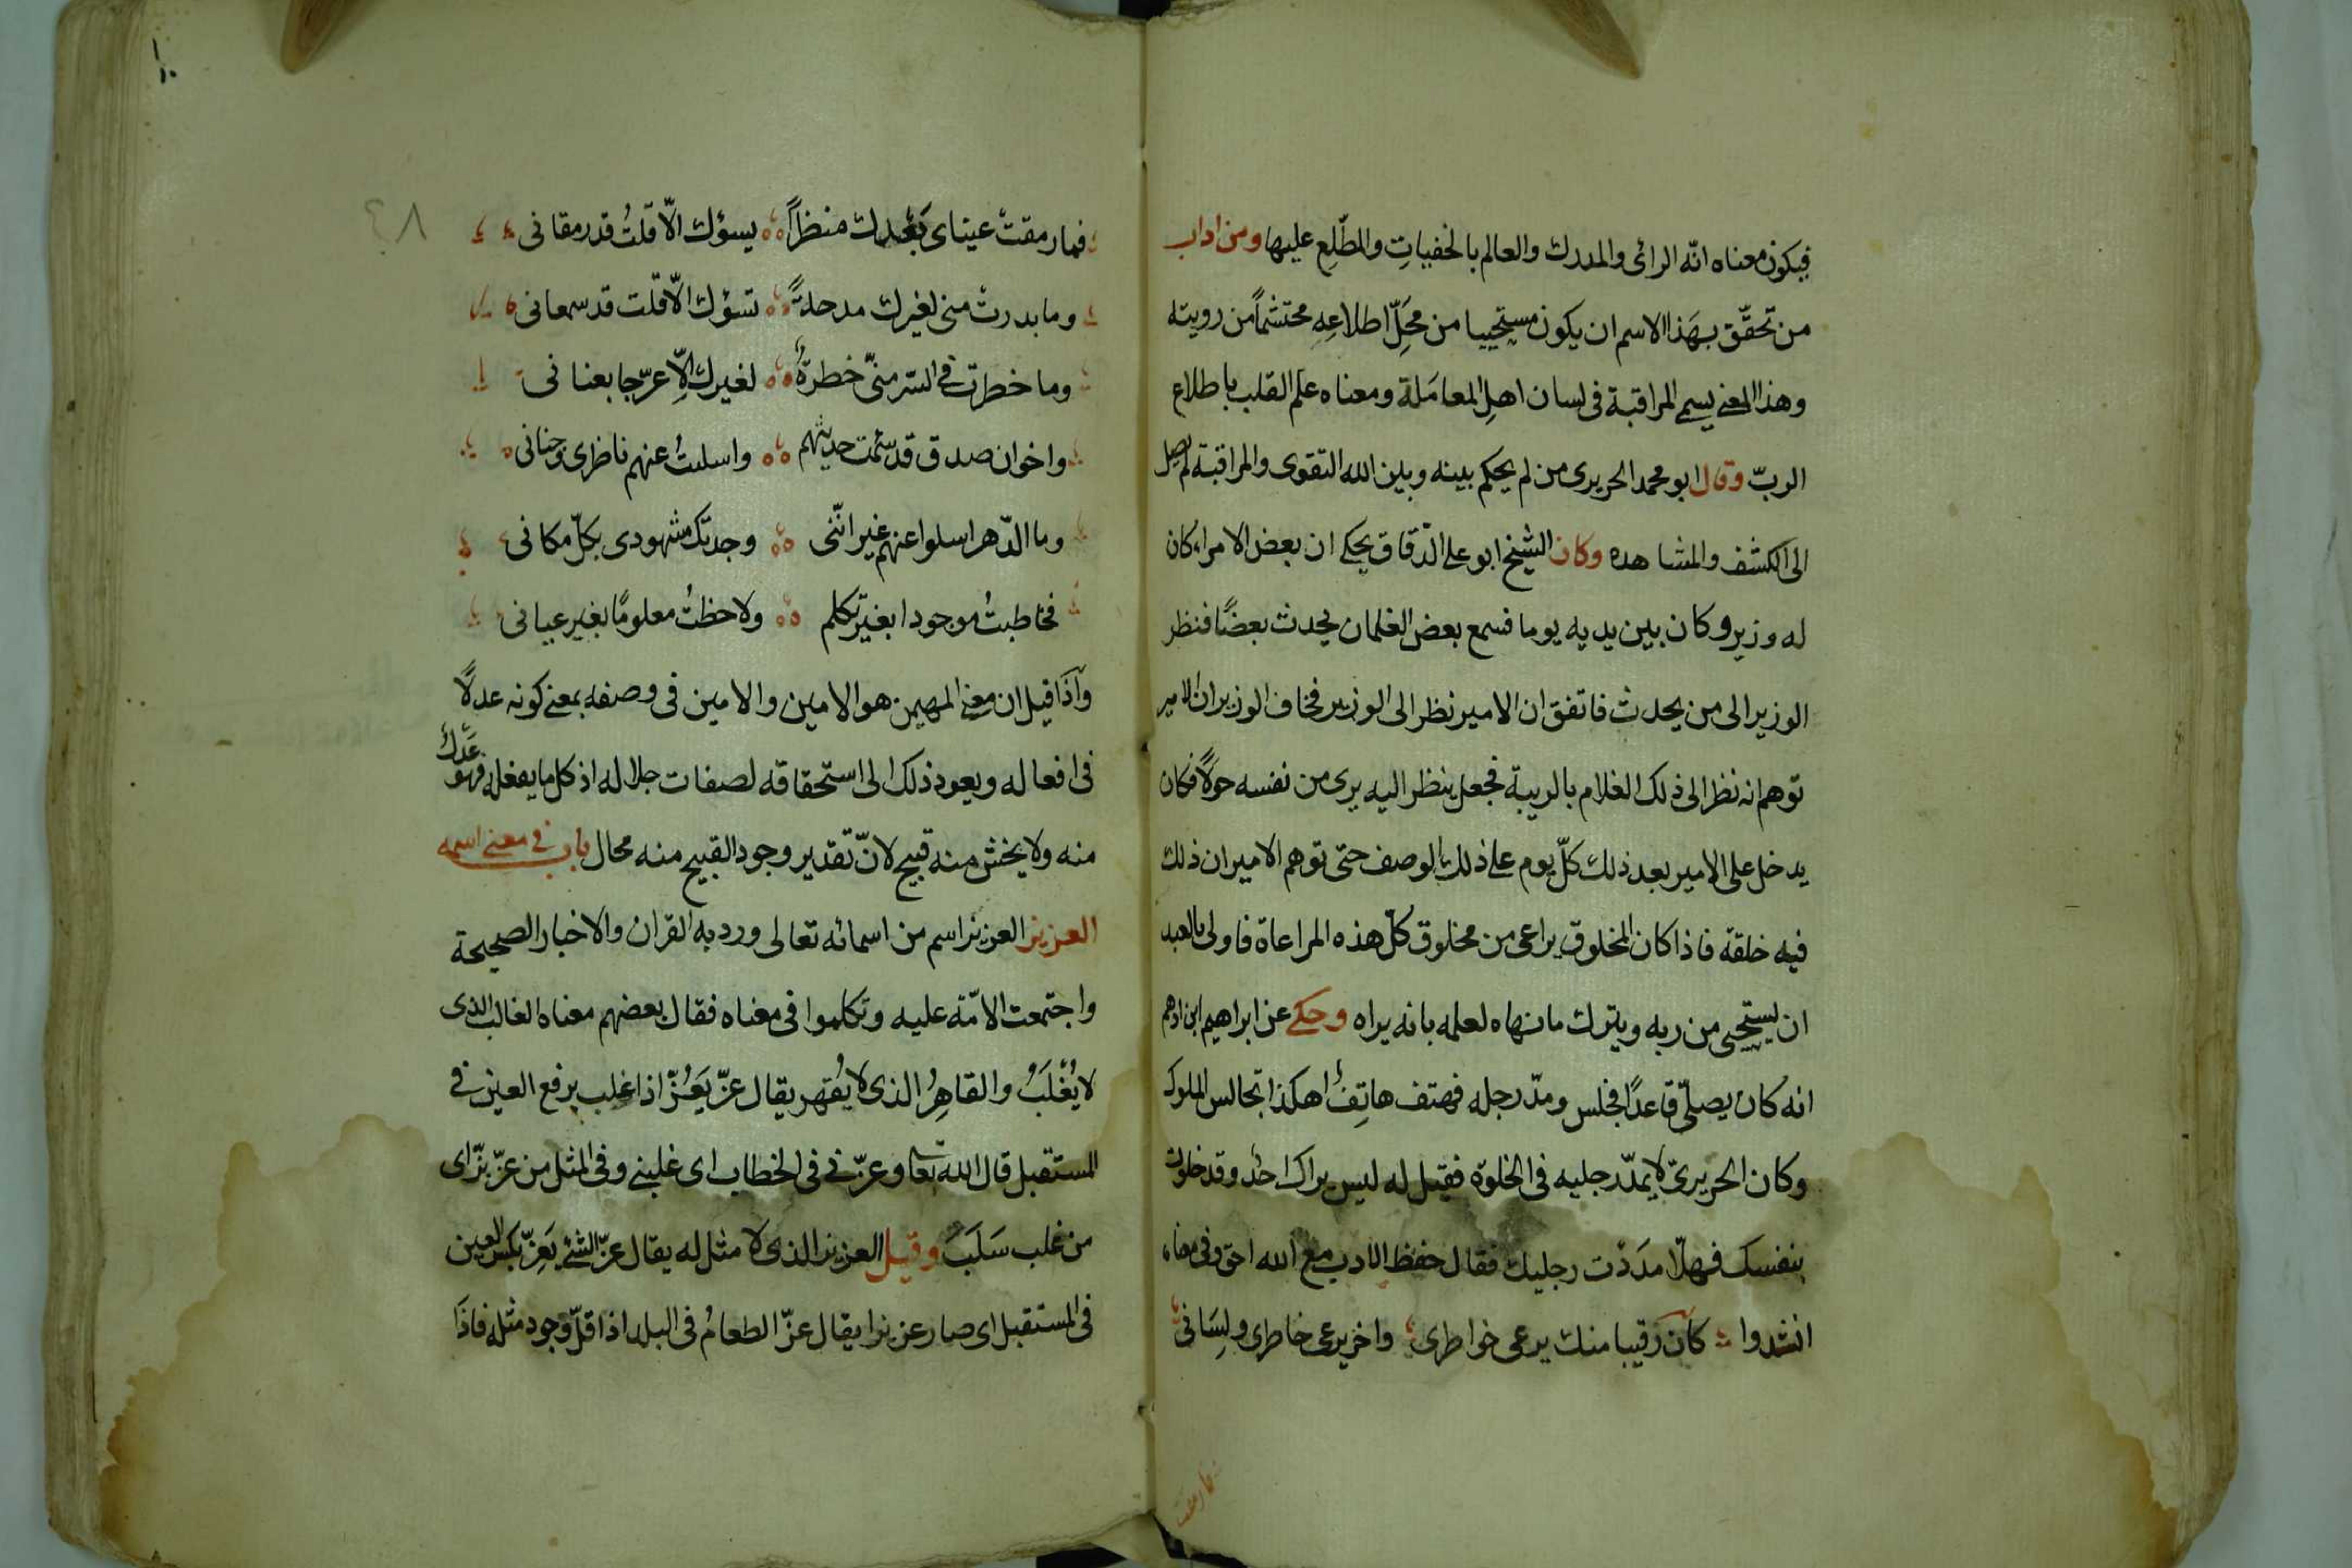 فيكون معناه انّه الرائى والمدرك والعالم بالخفياتِ والمطّلِع عليها ومن اداب
من تحقّق بهَذا الاسم ان يكون مستحييا من محَلِّ اطلاعِهِ محتشماً من رويته
وهذا المعنى يسمى المراقبة فى لسان اهلِ المعامَلة ومعناه علم القلب باطلاع
الربّ وقال ابو محمد الحريرى من لم يحكم بينه وبين الله التقوى والمراقبة لم يصل
الى الكشف والمشاهده وكان الشيخ ابو على الدّقاق يحكى ان بعض الامراء كان
له وزير وكان بين يديه يوما فسمع بعض الغلمان يحدث بعضًا فنظر
الوزير الى من يحدث فاتفق ان الامير نظر الى الوزير فخاف الوزير ان الامير
توهم انه نظر الى ذلك الغلام بالريبة فجعل ينظر اليه يرى من نفسه حولًا فكان
يدخل على الامير بعد ذلك كلّ يوم على ذلك الوصف حتى توهم الامير ان ذلك
فيه خلقة فاذا كان المخلوق يراعى من مخلوق كلّ هذه المراعاة فاولى بالعبد
ان يستحيى من ربه ويترك ما نهاه لعلمه بانه يراه وحكى عن ابراهيم ابن ادهم
انه كان يصلّى قاعدًا فجلس ومدّ رجله فهتف هاتِفٌ اهكذا تجالس الملوك
وكان الحريرىّ لا يمدّ رجليه فى الخلوة فقيل له ليس يراك احدٌ وقد خلوت
بنفسك فهلّا مدَدْت رجليك فقال حفظ الادب مع الله احق وفى معناه
انشدوا كأن رقيبا منك يرعى خواطرى واخر يرعى خاطرى ولِسَانى
فما رمقت
٤٨
١٠
فما رمقتْ عيناى بَعْدك منظراً يسؤك الّا قلتُ قد رمقانى
وما بدرتْ منى لغيرك مدحلةً تسؤك الّا قلت قد سمعانى
وما خطرت فى السّر منّى خطرةٌ لغيرك الّا عرّجا بعنانى
واخوان صدق قد سئمت حديثهم واسليتُ عنهم ناظرى وجنانى
وما الدّهر اسلوا عنهم غير انّنى وجدتك مشهودى بكلّ مكانى
فخاطبتُ موجودا بغير تكلم ولاحظتُ معلومًا بغير عيانى
واذَا قيل ان معنى المهيمن هو الامين والامين فى وصفه بمعنى كونه عدلًا
فى افعاله ويعود ذلك الى استحقاقه لصفات جلاله اذ كل ما يفعله فهو عَدْلٌ
منه ولا يخش منه قبيح لانّ تقدير وجود القبيح منه محال باب فى معنى اسمه
العزيز العزيز اسم من اسمائه تعالى ورد به القران والاخبار الصحيحة
واجتمعت الامّة عليه وتكلموا فى معناه فقال بعضهم معناه الغالب الذى
لا يُغْلَبُ والقاهِرُ الذى لا يُقهر يقال عزّ يَعُزّ اذا غلب برفع العين فى
المستقبل قال الله تعا وعزّنى فى الخطاب اى غلبنى وفى المثل من عزّ بزّ اى
من غلب سَلَبَ وقيل العزيز الذى لا مثل له يقال عزّ الشئ يَعِزّ بكسر العين
فى المستقبل اى صار عزيزا يقال عزّ الطعامُ فى البلد اذا قلّ وجود مثله فاذَا